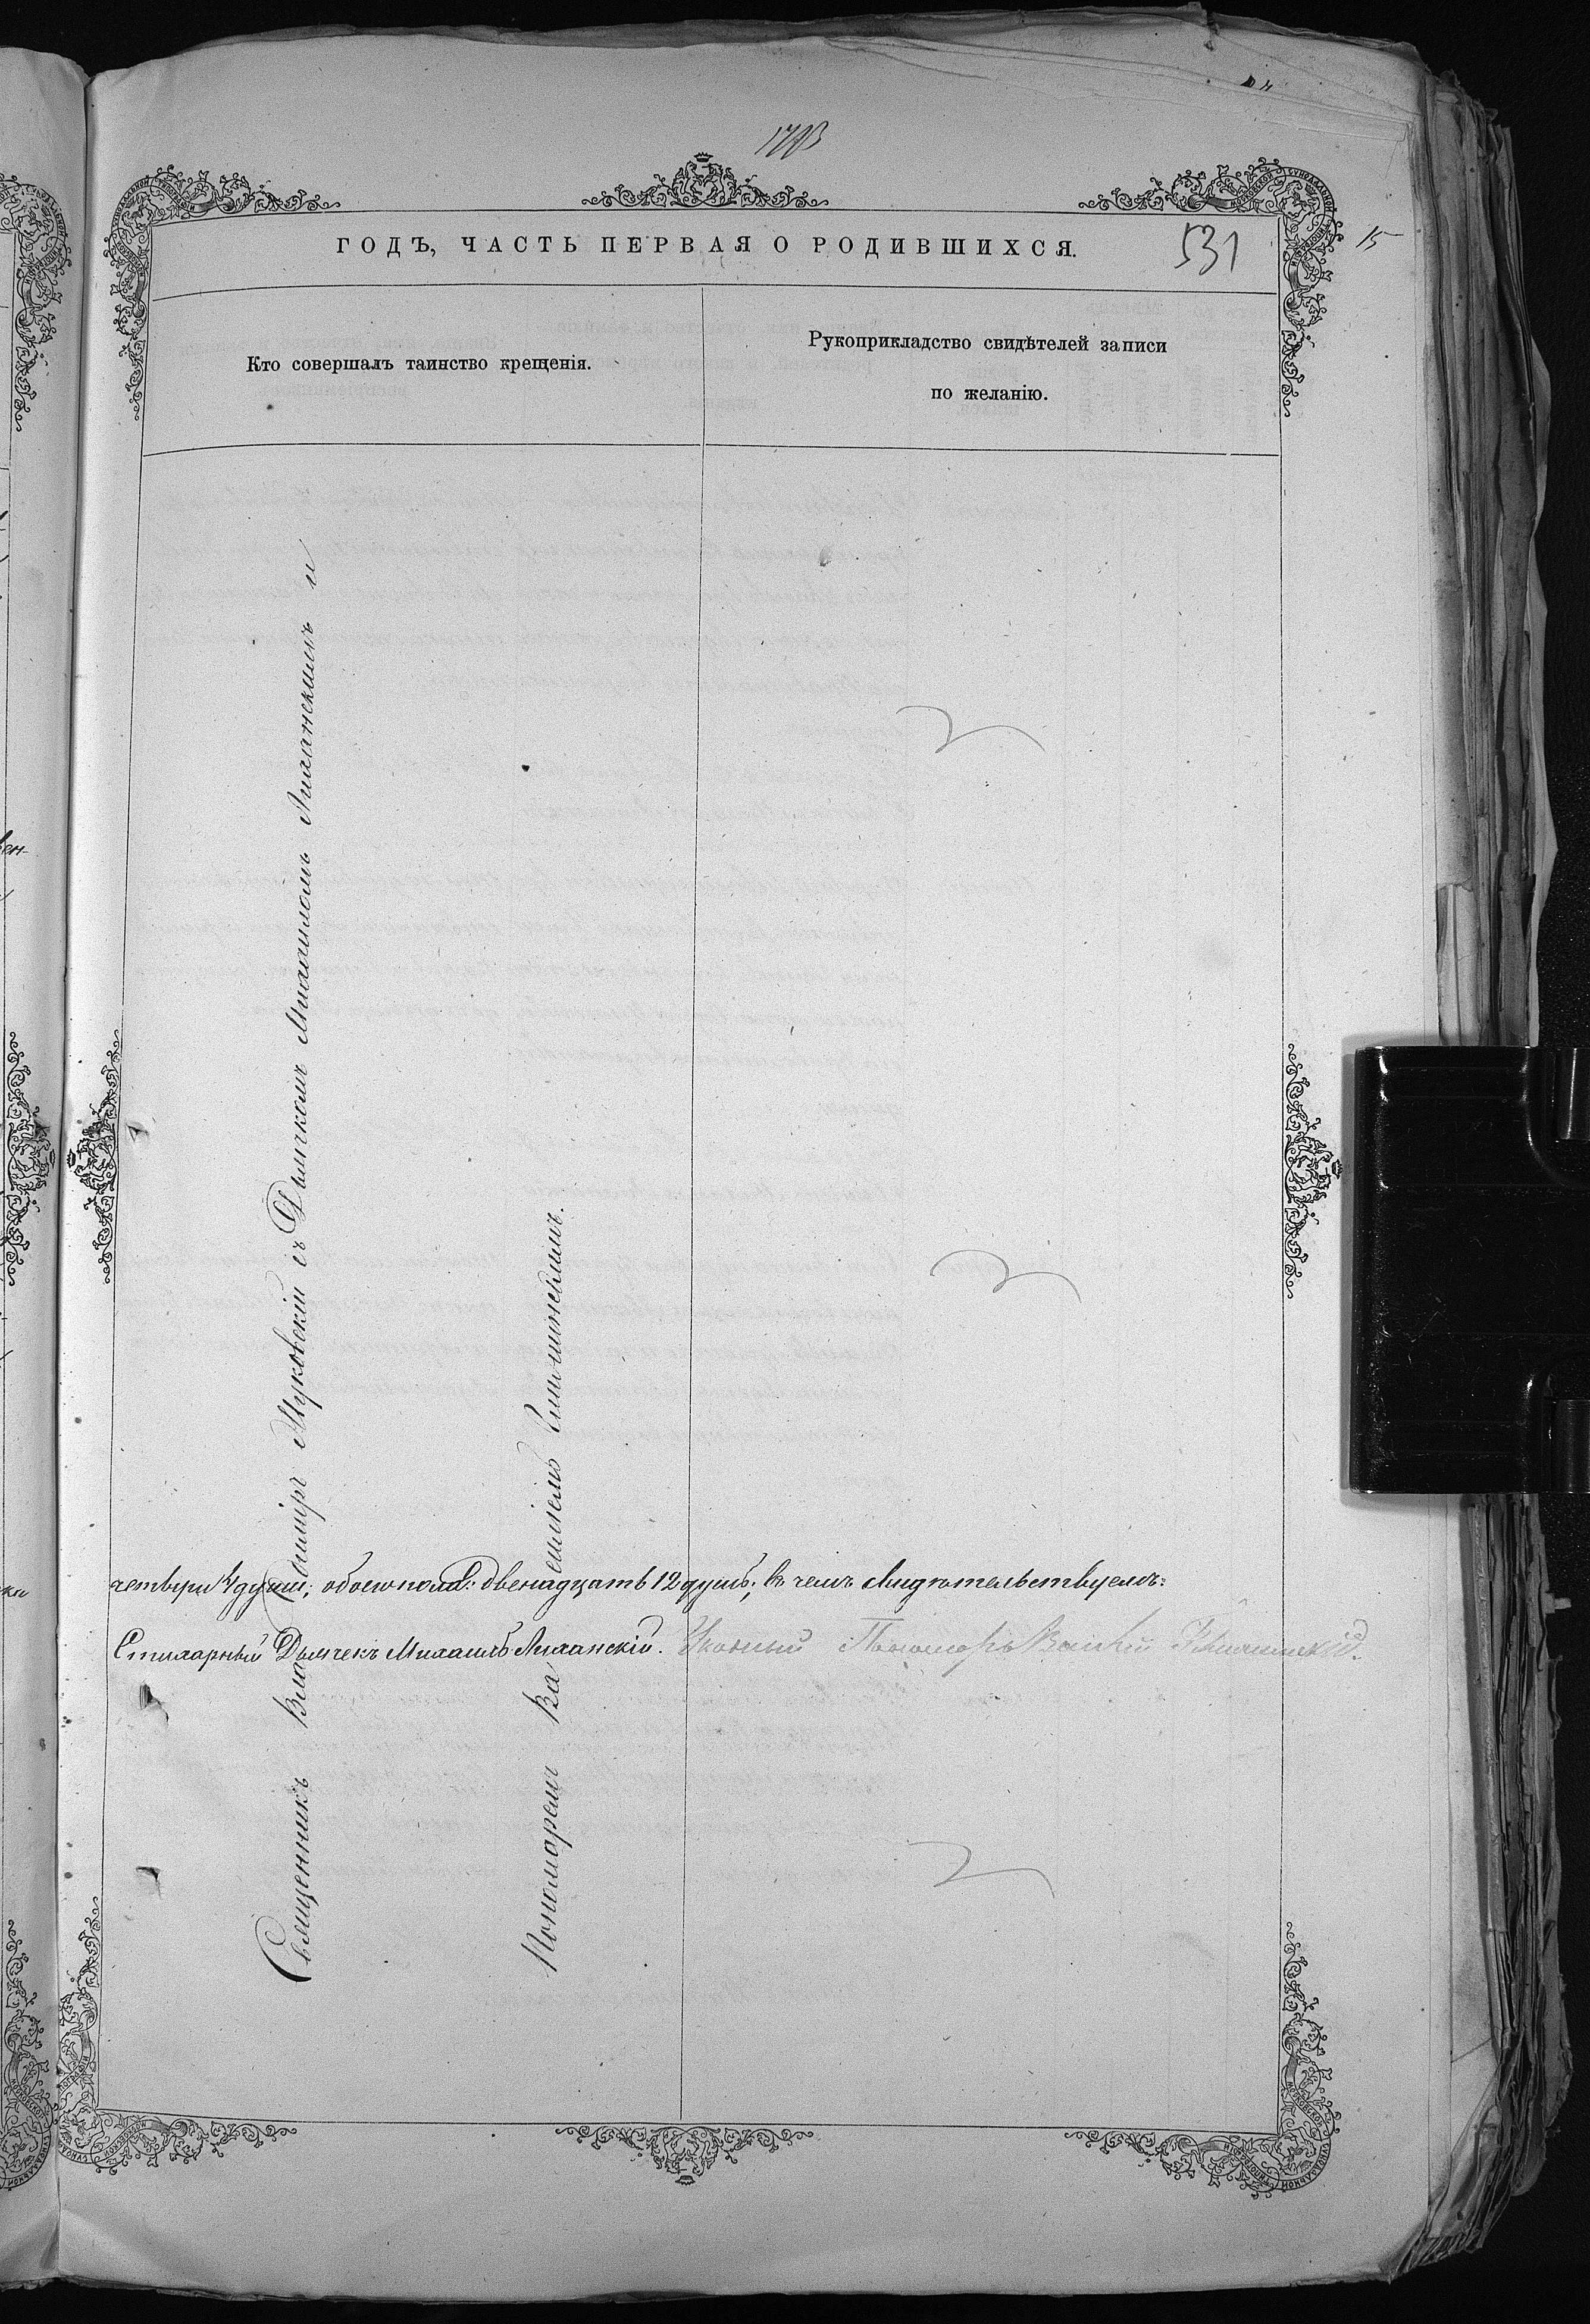 ГОДЪ, ЧАСТЬ ПЕРВАЯ О РОДИВШИХСЯ.
531
15
Кто совершалъ таинство крещенія.
Рукоприкладство свидѣтелей записи
по желанію.
Священникъ Владиміръ Жуковскій съ Дьячкомъ Михаиломъ Лиханскимъ и
Пономаремъ Ва
четыри 4 души; обоего пола: двенадцать 12 душъ; въ чемъ свидѣтельствуемъ:
Стихарный Дьячекъ Михаилъ Лиханскій. Пономарь